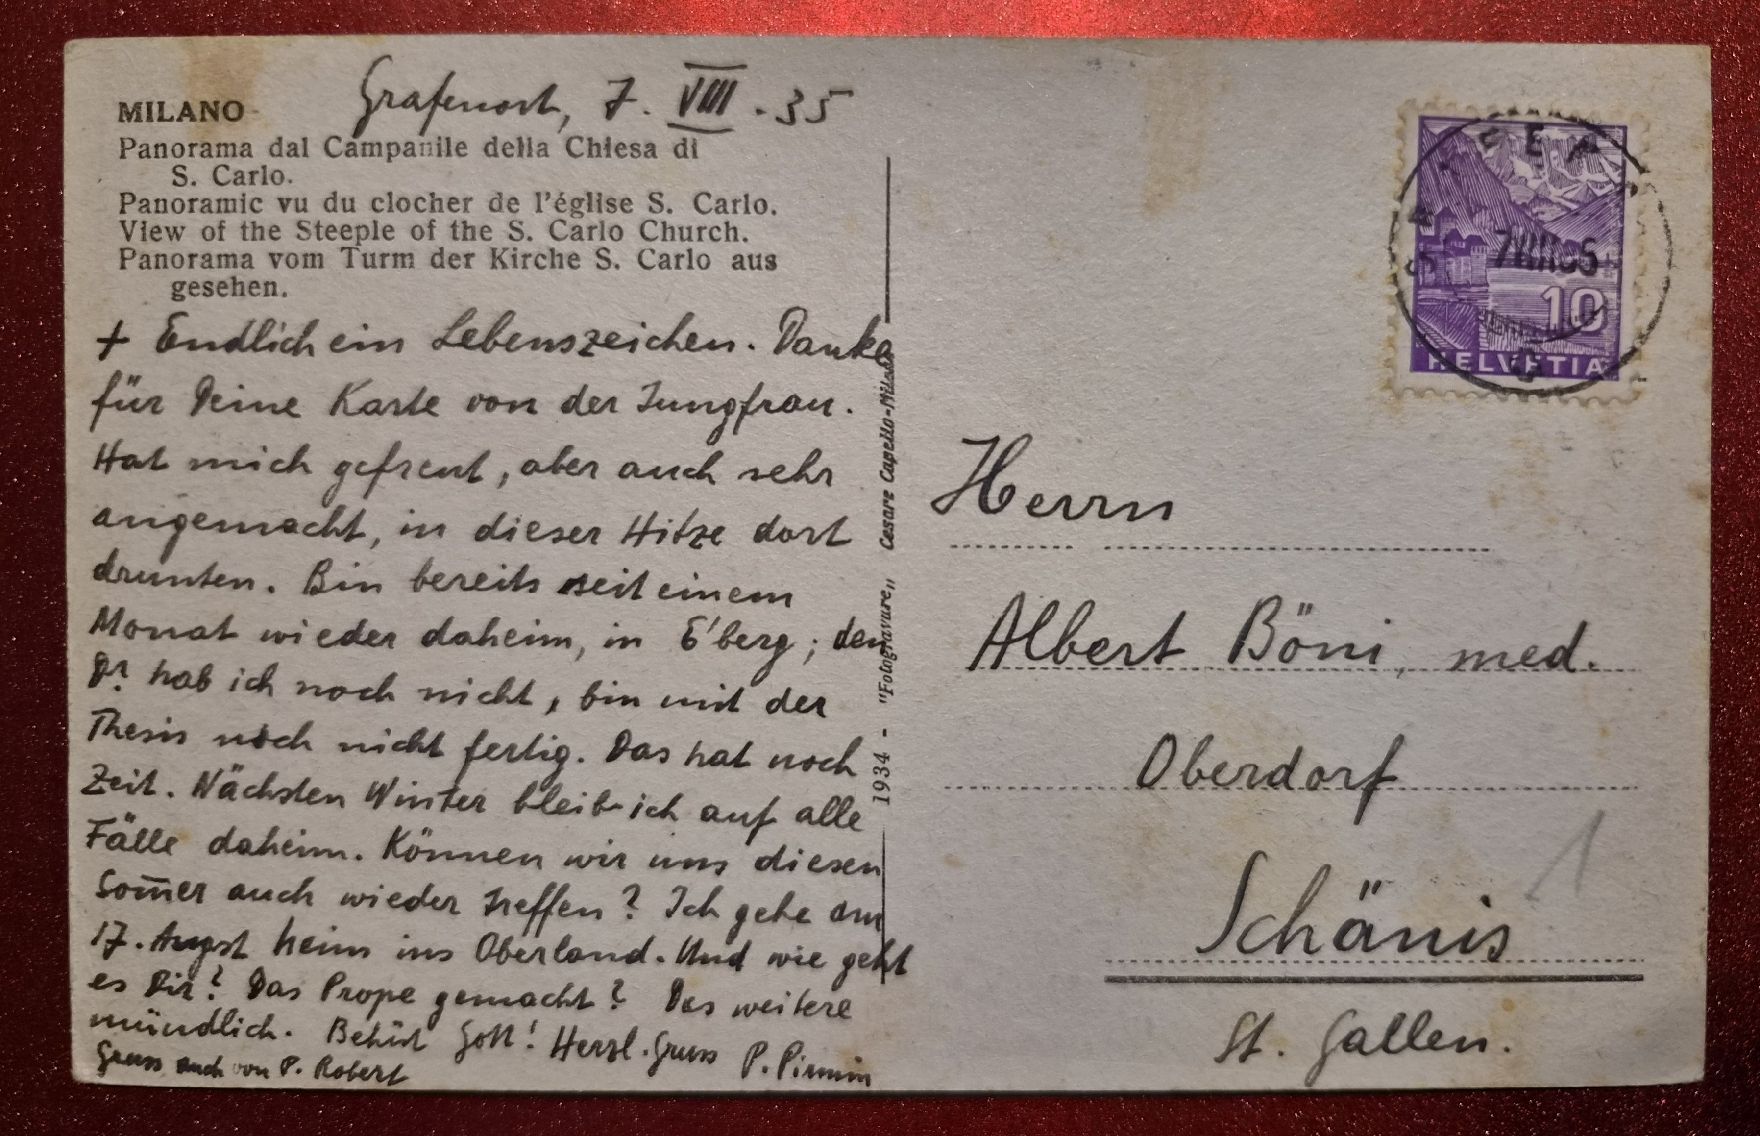 Grafenort, 7. VIII. 35
MILANO
Panorama dal Campanile della Chiesa di
S. Carlo.
Panoramic vu du clocher de l'église S. Carlo.
View of the Steeple of the S. Carlo Church.
Panorama vom Turm der Kirche S. Carlo aus
gesehen.
+ Endlich ein Lebenszeichen. Danke
für Deine Karte von der Jungfrau.
Hat mich gefreut, aber auch sehr
angemacht, in dieser Hitze dort
drunten. Bin bereits seit einem
Monat wieder daheim, in E'berg; den
Dr. hab ich noch nicht, bin mit der
Thesis noch nicht fertig. Das hat noch
Zeit. Nächsten Winter bleib ich auf alle
Fälle daheim. Können wir uns diesen
Som̅er auch wieder treffen? Ich gehe am
17. August heim ins Oberland. Und wie geht
es Dir? Das Prope gemacht? Das weitere
mündlich. Behüt Gott! Herzl. Gruss P. Pirmin
Gruss auch von P. Robert
1934 - "Fotogravure„ Cesare Capello-Milano
7 VIII 35
10
HELVETIA
Herrn
Albert Böni, med.
Oberdorf
Schänis
St. Gallen.
1